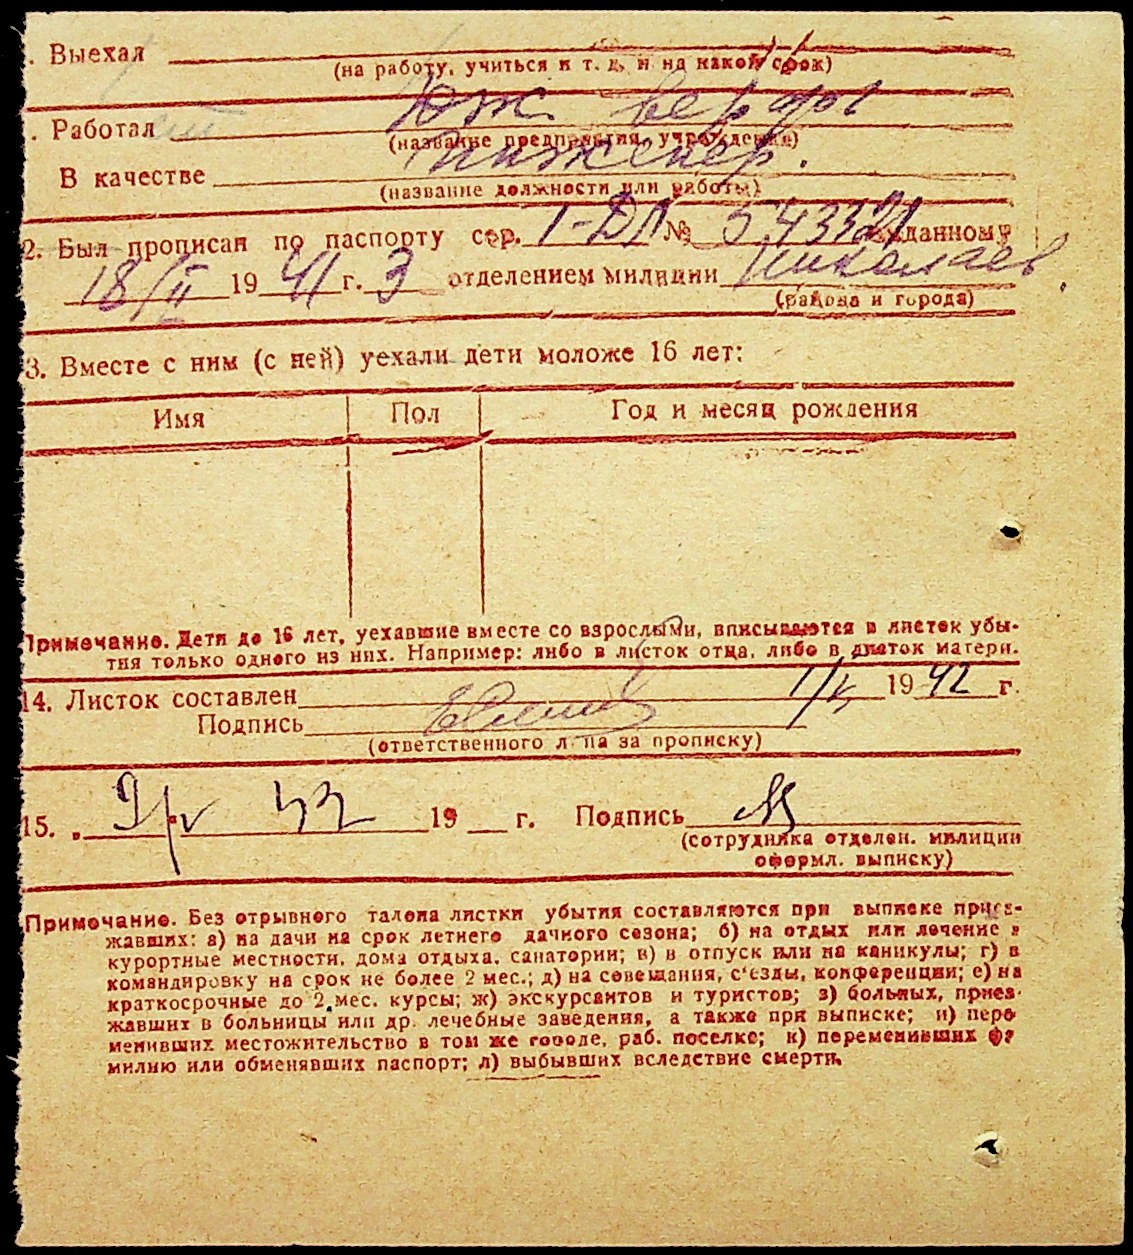 . Выехал
(на работу, учиться и т. д. и на какой срок)
Юж верфь
. Работал
(название предприятия, учреждения)
Инженер.
В качестве
(название должности или работы)
2. Был прописан по паспорту сер. 1-ДЛ № 543321 выданному
18/II 1941 г. 3 отделением милиции Николаев
(района и города)
3. Вместе с ним (с ней) уехали дети моложе 16 лет:
Имя Пол Год и месяц рождения
Примечание. Дети до 16 лет, уехавшие вместе со взрослыми, вписываются в листок убы-
тия только одного из них. Например: либо в листок отца, либо в листок матери.
14. Листок составлен 1/V 1942 г.
Подпись
(ответственного лица за прописку)
15. „ 9/IV 42 19 г. Подпись
(сотрудника отделен. милиции
оформл. выписку)
Примечание. Без отрывного талона листки убытия составляются при выписке приез-
жавших: а) на дачи на срок летнего дачного сезона; б) на отдых или лечение в
курортные местности, дома отдыха, санатории; в) в отпуск или на каникулы; г) в
командировку на срок не более 2 мес.; д) на совещания, с'езды, конференции; е) на
краткосрочные до 2 мес. курсы; ж) экскурсантов и туристов; з) больных, приез-
жавших в больницы или др. лечебные заведения, а также при выписке; и) пере
менивших местожительство в том же городе, раб. поселке; к) переменивших фа
милию или обменявших паспорт; л) выбывших вследствие смерти.